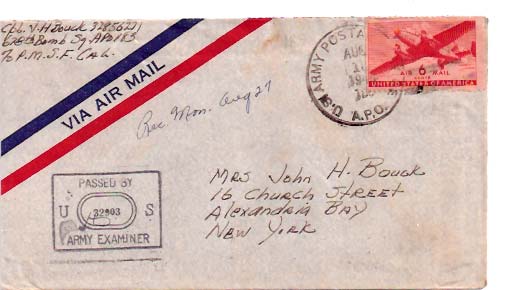 Cpl. V-H Bouck 32856231
678th Bomb Sq. APO 183
% P.M. S.F. CAL.
VIA AIR MAIL
Rec. Mon. Aug 27
U.S. ARMY POSTAL
AUG
A.P.O.
AIR 6 MAIL
CENTS
UNITED STATES OF AMERICA
Mrs John H. Bouck
16 Church Street
Alexandria Bay
New York
PASSED BY
U 32903 S
ARMY EXAMINER